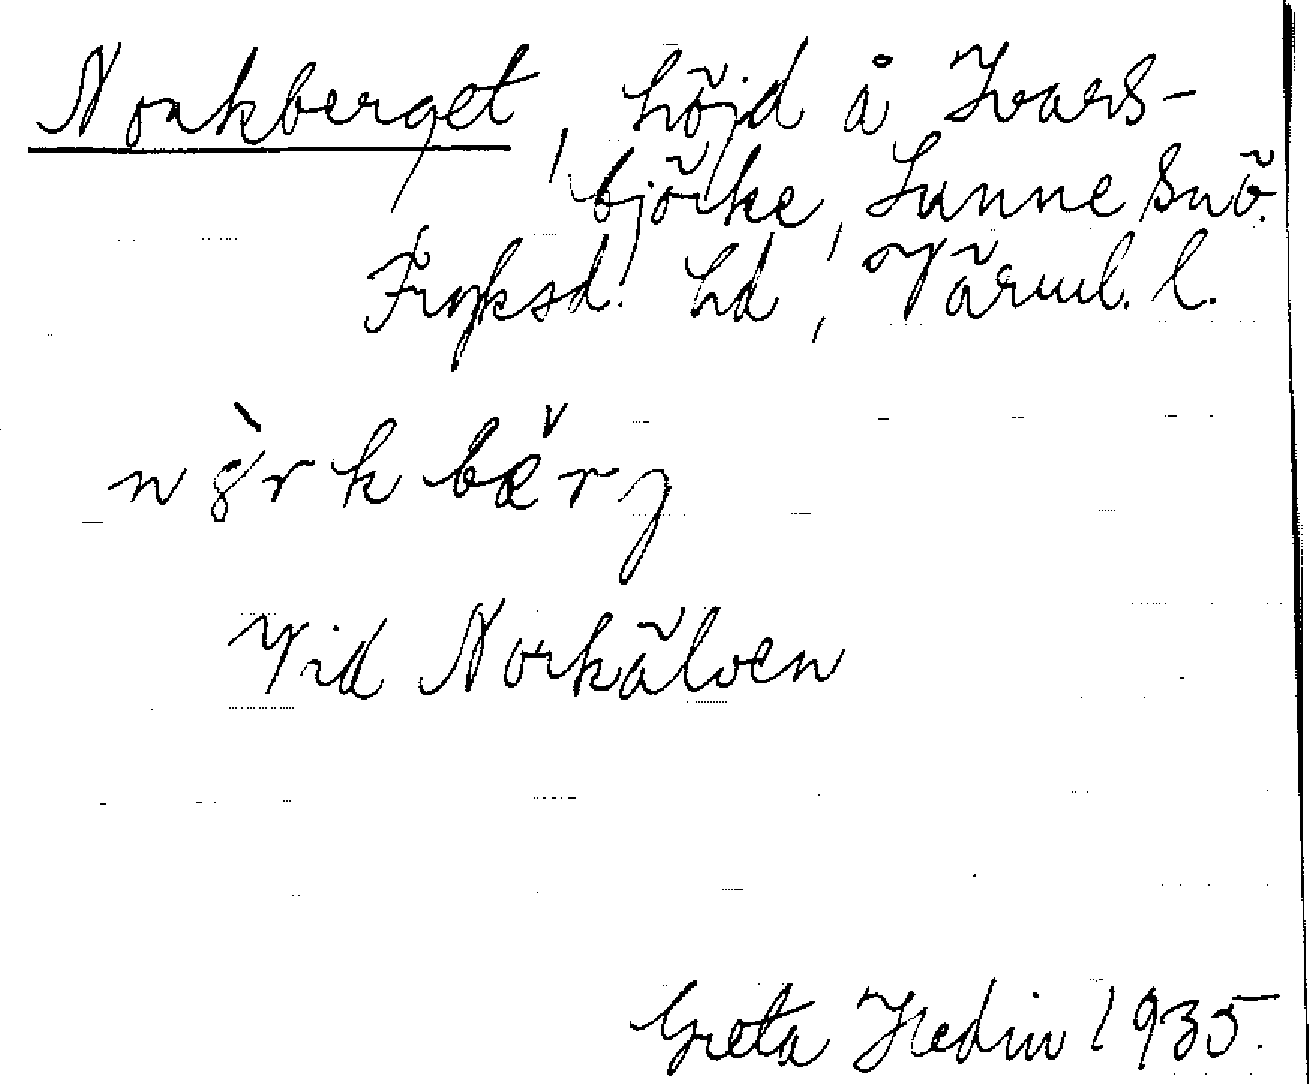 Norkberget, höjd å Ivars-
björke, Sunne snö.
Fryksd. hd, Värml. l.
nò̤rkbæ̌rj
Vid Norkälven
Greta Hedin 1935.